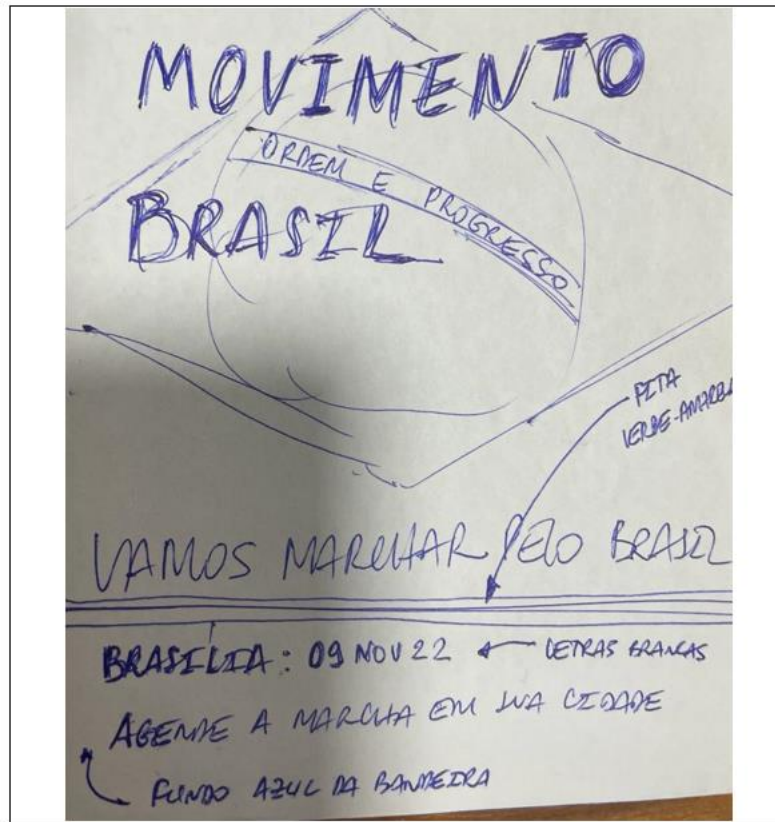 MOVIMENTO
ORDEM E PROGRESSO
BRASIL
FITA
VERDE-AMARELA
VAMOS MARCHAR PELO BRASIL
BRASÍLIA: 09 NOV 22
LETRAS BRANCAS
AGENDE A MARCHA EM SUA CIDADE
FUNDO AZUL DA BANDEIRA